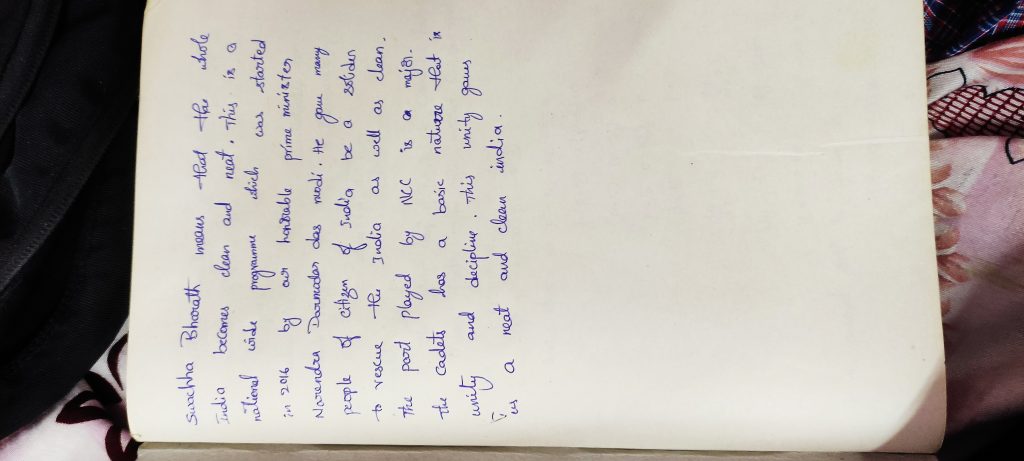 Swachha Bharath means that the whole
India becomes clean and neat. This is a
national wide programme which was started
in 2016 by our honorable prime minister
Narendra Darmodar das modi. He gave many
people of citizen of India be a solider
to rescue the India as well as clean.
The part played by NCC is a major.
the cadets has a basic nature that is
unity and decipline. This unity gaves
us a neat and clean india.